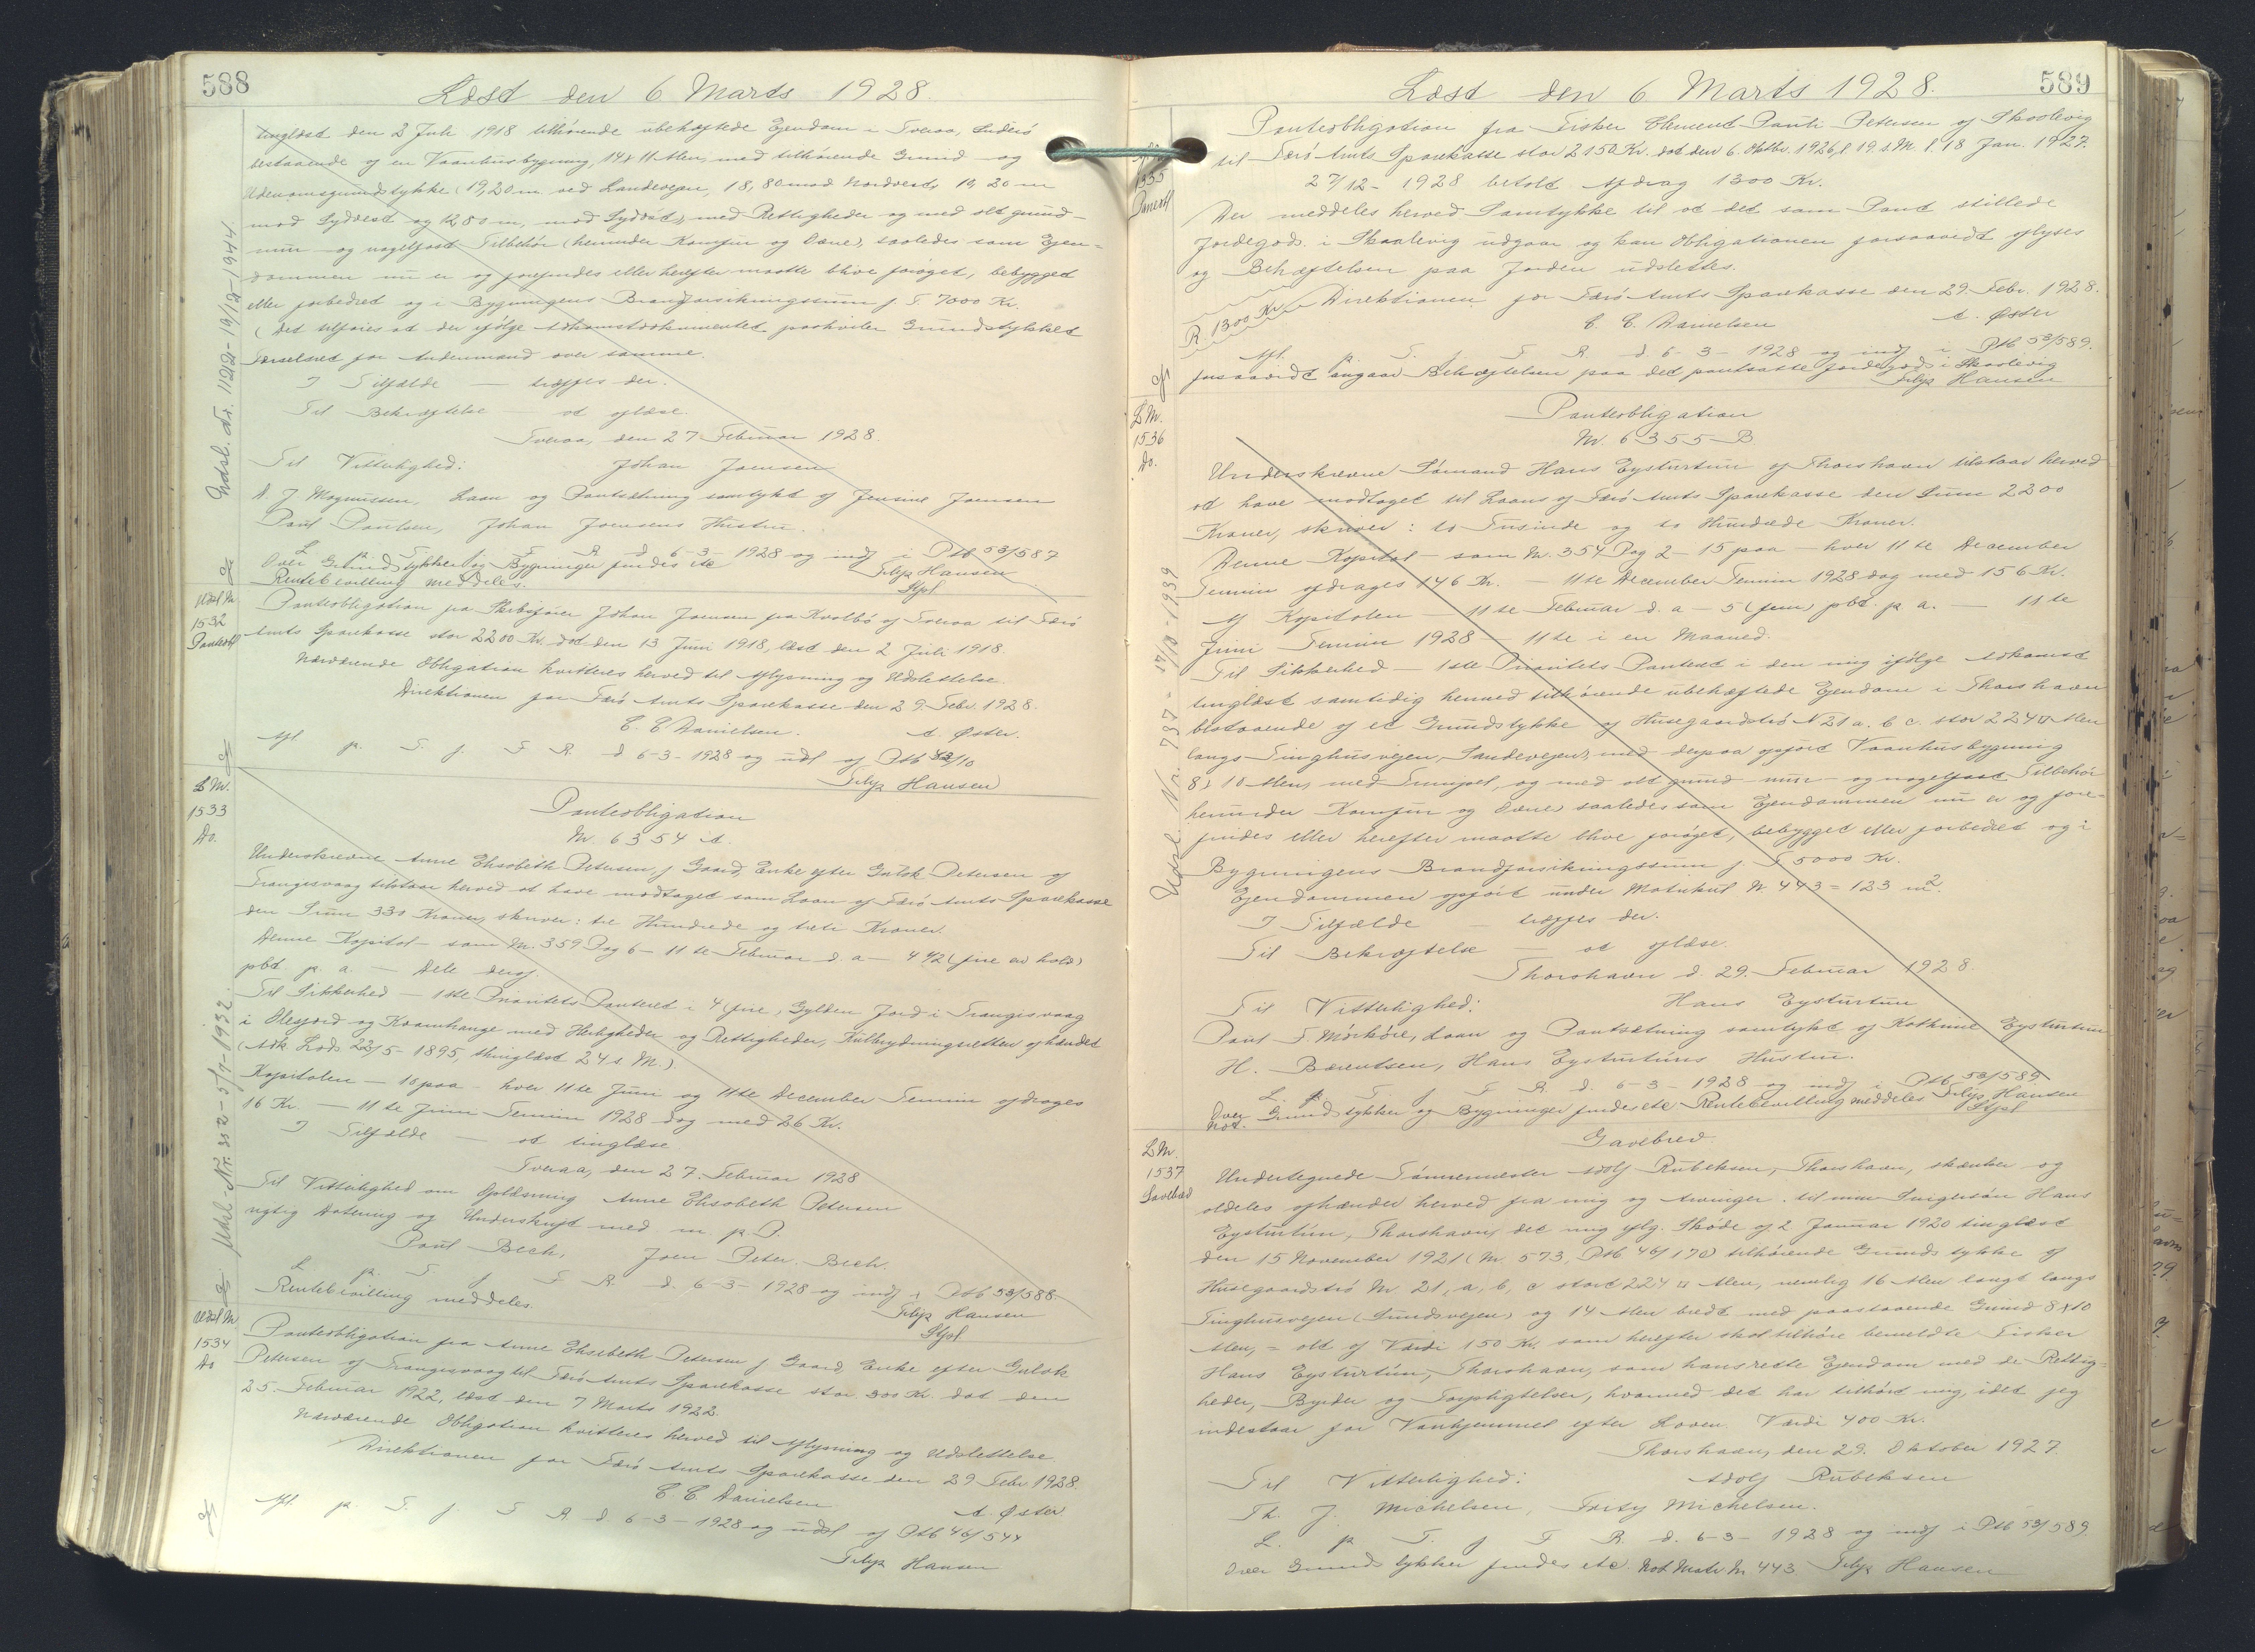 588
Læst den 6 Marts 1928.
tinglæst den 2 Juli 1918 tilhørende ubehæftede Ejendom i Tveraa, Suderö
bestaaende af en Vaanhusbygning, 14 x 11 Alen, med tilhørende Grund og
Udenomsgrundstykke (19,20 m ved Landevejen, 18,80 mod Nordvest, 19,20 m
mod Sydvest og 12,80 m, mod Sydøst), med Rettigheder og med alt grund-
mur og nagelfast Tilbehør (herunder Komfur og Ovne), saaledes som Ejen-
dommen nu er og forefindes eller herefter maatte blive forøget, bebygget
eller forbedret og i Bygningens Brandforsikringssum f. T. 7000 Kr.
(Det tilføies at der ifølge Adkomstdokumentet paahviler Grundstykket
Færselsret for Andenmand over samme.
I Tilfælde — træffes der.
Til Bekræftelse — at aflæse.
Tveraa, den 27 Februar 1928.
Til Vitterlighed: Johan Joensen
D. J. Magnussen, Laan og Pantsætning samtykt af Jensine Joensen
Poul Poulsen, Johan Joensens Hustru.
L. p. T. f. F. R. d 6-3-1928 og indf i Ptb 53/587
Over Grundstykker og Bygninger findes etc Filip Hansen
Rentebevilling meddeles. Stpl
Udsl. Nr. 1122 - 19/12-1944.
Udsl Nr.
1532
Panteobl
Panteobligation fra Skibsfører Johan Joensen fra Kvalbø af Tveraa til Færø
Amts Sparekasse stor 2200 Kr. dat den 13 Juni 1918, læst den 2 Juli 1918.
Nærværende Obligation kvitteres herved til Aflysning og Udslettelse.
Direktionen for Færø Amts Sparekasse den 29. Febr. 1928.
C. C. Danielsen. A. Øster.
Afl. p. T. f. F. R. d 6-3-1928 og udsl af Ptb 43/10
Filip Hansen
L Nr.
1533
Do.
Panteobligation
Nr. 6354 A.
Underskrevne Anne Elisabeth Petersen f Gaard, Enke efter Gulak Petersen af
Trangisvaag tilstaar herved at have modtaget som Laan af Færø Amts Sparekasse
den Sum 330 Kroner, skriver: tre Hundrede og treti Kroner.
Denne Kapital — som Nr. 359 Pag 6 — 11te Februar d. a — 4 1/2 (fire en halv)
pbt. p. a. — Dele deraf.
Til Sikkerhed — 1ste Prioritets Panteret i 4 (fire) Gylden Jord i Trangisvaag
i Olesjord og Kvamhauge med Herligheder og Rettigheder, Kulbrydningsretten afhændet
(Adk. Lods. 22/5-1895, thinglæst 24 s. M.)
Kapitalen — 10 paa — hver 11te Juni og 11te December Termin afdrages
16 Kr. — 11te Juni Termin 1928 dog med 26 Kr.
I Tilfælde — at tinglæse.
Tveraa, den 27. Februar 1928
Til Vitterlighed om Oplæsning Anne Elisabeth Petersen
rigtig Datering og Underskrift med m p P.
Poul Bech, Joen Peter Bech.
L p. T. f. F. R. d. 6-3-1928 og indf i Ptb 53/588.
Rentebevilling meddeles. Filip Hansen
Stpl
Udsl. Nr. 352 - 5/9-1932.
Udsl Nr
1534
Do
Panteobligation fra Anne Elisabeth Petersen f Gaard, Enke efter Gulak
Petersen af Trangisvaag til Færø Amts Sparekasse stor 300 Kr. dat den
25. Februar 1922, læst den 7 Marts 1922.
Nærværende Obligation kvitteres herved til Aflysning og Udslettelse
Direktionen for Færø Amts Sparekasse den 29 Febr 1928.
C. C. Danielsen A. Øster
Afl. p. T. f. F. R. d 6-3-1928 og udsl af Ptb 46/544
Filip Hansen
589
Læst den 6 Marts 1928.
1535
Panteobl
Panteobligation fra Fisker Clement Pauli Petersen af Skaalevig
til Færø Amts Sparekasse stor 2150 Kr. dat den 6. Oktbr. 1926, l. 19 s. M. l. 18 Jan. 1927.
27/12 - 1928 betalt Afdrag 1300 Kr.
Der meddeles herved Samtykke til at det som Pant stillede
Jordegods i Skaalevig udgaar og kan Obligationen forsaavidt aflyses
og Behæftelsen paa Jorden udslettes.
R. 1300 Kr Direktionen for Færø Amts Sparekasse den 29. Febr. 1928.
C. C. Danielsen A. Øster
Afl. p. T. f. F. R. d. 6-3-1928 og indf i Ptb 53/589.
forsaavidt angaar Behæftelsen paa det pantsatte Jordegods i Skaalevig
Filip Hansen
L Nr.
1536
Do.
Panteobligation
Nr. 6355 B
Underskrevne Sømand Hans Eysturtun af Thorshavn tilstaar herved
at have modtaget til Laans af Færø Amts Sparekasse den Sum 2200
Kroner, skriver: to Tusinde og to Hundrede Kroner.
Denne Kapital — som Nr. 354 Pag 2 — 15 paa — hver 11te December
Termin afdrages 146 Kr. — 11te December Termin 1928 dog med 156 Kr.
Af Kapitalen — 11te Februar d. a — 5 (fem) pbt. p. a. — 11te
Juni Termin 1928 — 11te i en Maaned.
Til Sikkerhed — 1ste Prioritets Panteret i den mig ifølge Adkomst
tinglæst samtidig hermed tilhørende ubehæftede Ejendom i Thorshavn
bestaaende af et Grundstykke af Husegaardstrø N 21 a. b c. stor 224 □ Alen
langs Tinghusvejen, (Sandevejen) med derpaa opført Vaanhusbygning
8 x 10 Alen, med Trempel, og med alt grund- mur- og nagelfast Tilbehør
herunder Komfur og Ovne) saaledes som Ejendommen nu er og fore-
findes eller herefter maatte blive forøget, bebygget eller forbedret og i
Bygningens Brandforsikringssum f. T 5000 Kr.
Ejendommen opført under Matrikul N 443 = 123 m2.
I Tilfælde — træffes der.
Til Bekræftelse — at aflæse.
Thorshavn d. 29. Februar 1928.
Til Vitterlighed: Hans Eysturtun
Poul F. Mørköre, Laan og Pantsætning samtykt af Kathrine Eysturtun
H. Bærentsen, Hans Eysturtuns Hustru.
L. p. T. f F. R. d. 6-3-1928 og indf i Ptb 53/589
Over Grundstykker og Bygninger findes etc Rentebevilling meddeles Filip Hansen
Not. Stpl
Udsl. Nr. 737 - 17/10-1939
L Nr.
1537
Gavebrev
Gavebrev.
Undertegnede Tømremester Adolf Rubeksen, Thorshavn, skænker og
aldeles afhænder herved fra mig og Arvinger til min Svigersøn Hans
Eysturtun, Thorshavn, det mig iflg. Skøde af 2 Januar 1920 tinglæst
den 15 November 1921 (Nr. 573, Ptb 46/170) tilhørende Grundstykke af
Husegaardstrø Nr 21, a, b, c stort 224 □ Alen, nemlig 16 Alen langt langs
Tinghusvejen (Sundsvejen) og 14 Alen bredt med paastaaende Grund 8 x 10
Alen, = alt af Værdi 150 Kr. som herefter skal tilhøre bemeldte Fisker
Hans Eysturtun, Thorshavn, som hans rette Ejendom med de Rettig-
heder, Byrder og Forpligtelser, hvormed det har tilhørt mig, idet jeg
indestaar for Vanhjemmel efter Loven. Værdi 400 Kr.
Thorshavn, den 29. Oktober 1927.
Til Vitterlighed: Adolf Rubeksen
Th. J. Michelsen, Torfy Michelsen.
L. p T. f F R. d. 6-3-1928 og indf i Ptb 53/589.
Over Grundstykker findes etc. Not. Matr Nr 443 Filip Hansen